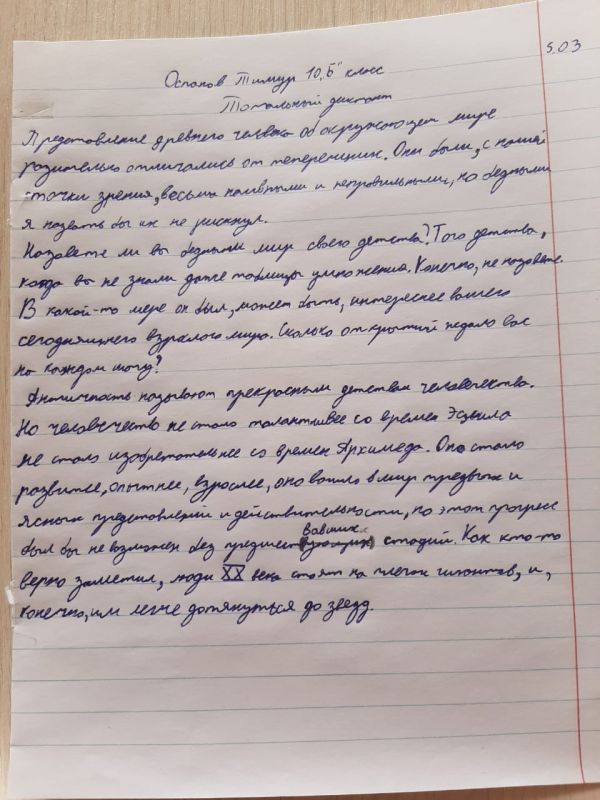 5.03
Оспанов Тимур 10 „Б" класс
Тотальный диктант
Представление древнего человека об окружающем мире
разительно отличались от теперешних. Они были, с нашей
точки зрения, весьма наивными и неправильными, но бедными
я назвать бы их не рискнул.
Назовете ли вы бедным мир своего детства? Того детства,
когда вы не знали даже таблицы умножения. Конечно, не назовете.
В какой-то мере он был, может быть, интереснее вашего
сегодняшнего взрослого мира. Сколько открытий ждало вас
на каждом шагу?
Античность называют прекрасным детством человечества.
Но человечество не стало талантливее со времен Эсхила
не стало изобретательнее со времен Архимеда. Оно стало
развитее, опытнее, взрослее, оно вошло в мир трезвых и
ясных представлений и действительности, но этот прогресс
был бы не возможен без предшествовавших стадий. Как кто-то
верно заметил, люди XX века стоят на плечах гигантов, и,
конечно, им легче дотянуться до звезд.